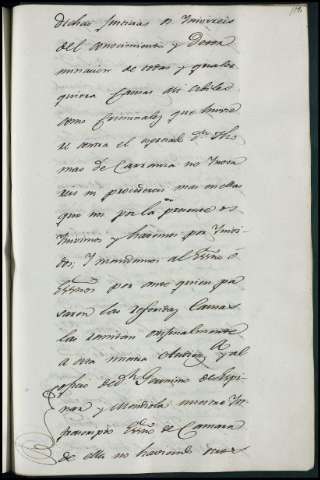 dichas Justicias os Inivireis
del conocimiento y Deter
minacion de todas y quales
quiera Causas asi cibiles
como Criminales que hubie
re contra el expresado Dn Tho
mas de Carranza no Trata
reis ni procedereis mas en ellas
que nos por la presente os
Inivimos y havemos por Inivi
dos, Y mandamos al Essno o
Essnos por ante quien pa
saron las referidas Causas
las remitan originalmente
a esta nuestra Audiencia Rl y al
oficio de Dn Geronimo de Espi
nosa y Mendiola nuestro In
frascripto Essno de Camara
de ella no haviendo